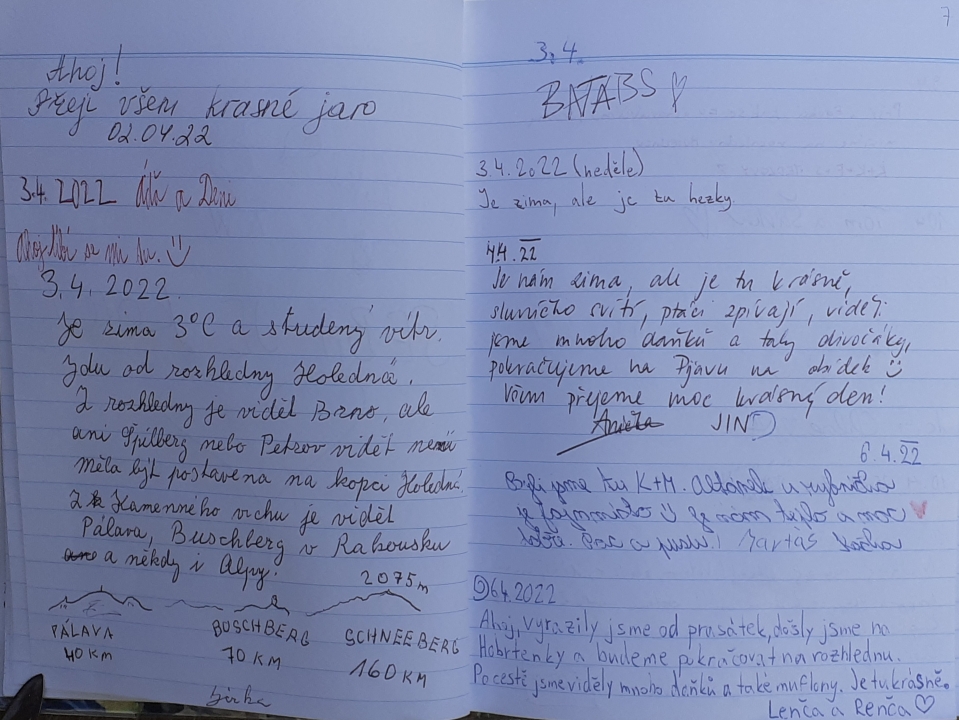 Ahoj!
Přeji všem krasné jaro
02.04.22
3.4. 2022 Áďa a Deni
Ahoj líbí se mi tu. :)
3.4. 2022.
Je zima 3°C a studený vítr.
Jdu od rozhledny Holedná.
Z rozhledny je vidět Brno, ale
ani Špilberg nebo Petrov vidět není
měla být postavena na kopci Holedná.
Z Kamenného vrchu je vidět
Pálava, Buschberg v Rakousku
a někdy i Alpy.
2075m
PÁLAVA
40 KM
BUSCHBERG
70 KM
SCHNEEBERG
160 KM
Jirka
7
3.4.
BATABS ♡
3.4.2022 (neděle)
Je zima, ale je tu hezky.
4.4.22
Je nám zima, ale je tu krásně,
sluníčko svítí, ptáci zpívají, viděli
jsme mnoho daňků a taky divočáky,
pokračujeme na Pjavu na obídek :)
Všem přejeme moc krásný den!
Anička JIN
6.4.22
Byli jsme tu K+M. Altánek u rybníčka
je fajn místo :) Je nám teplo a moc ♥
Pac a pusu!
6.4.2022
Ahoj, vyrazily jsme od prasátek, došly jsme na
Hobrtenky a budeme pokračovat na rozhlednu.
Po cestě jsme viděly mnoho daňků a také muflony. Je tu krásně.
Lenča a Renča ♡